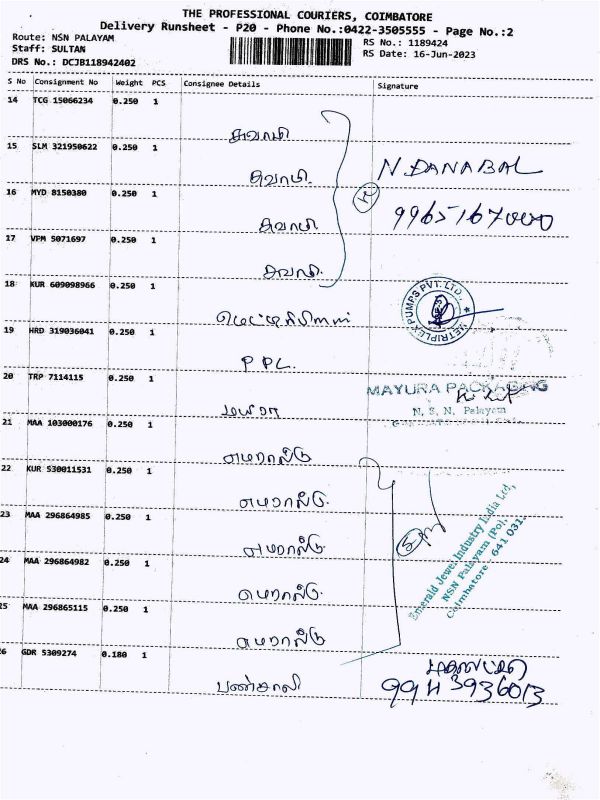 THE PROFESSIONAL COURIERS, COIMBATORE
Delivery Runsheet - P20 - Phone No.:0422-3505555 - Page No.:2
Route: NSN PALAYAM
RS No.: 1189424
Staff: SULTAN
RS Date: 16-Jun-2023
DRS No.: DCJB118942402
S No Consignment No Weight PCS Consignee Details Signature
14 TCG 15066234 0.250 1 சுவாமி
15 SLM 321950622 0.250 1 சுவாமி N. DANABAL
16 MYD 8150380 0.250 1 சுவாமி 9965167000
17 VPM 5071697 0.250 1 சுவாமி
18 KUR 609098966 0.250 1 METRIPLEX PUMPS PVT. LTD.,
19 HRD 319036041 0.250 1 PPL.
20 TRP 7114115 0.250 1 மயூரா MAYURA PACKAGING
N. S. N. Palayam
21 MAA 103000176 0.250 1 எமரால்டு
22 KUR 530011531 0.250 1 எமரால்டு
23 MAA 296864985 0.250 1 எமரால்டு
24 MAA 296864982 0.250 1 எமரால்டு
25 MAA 296865115 0.250 1 எமரால்டு
Emerald Jewel Industry India Ltd,
NSN Palayam (Po),
Coimbatore - 641 031.
26 GDR 5309274 0.180 1 பன்சாலி
9943936013